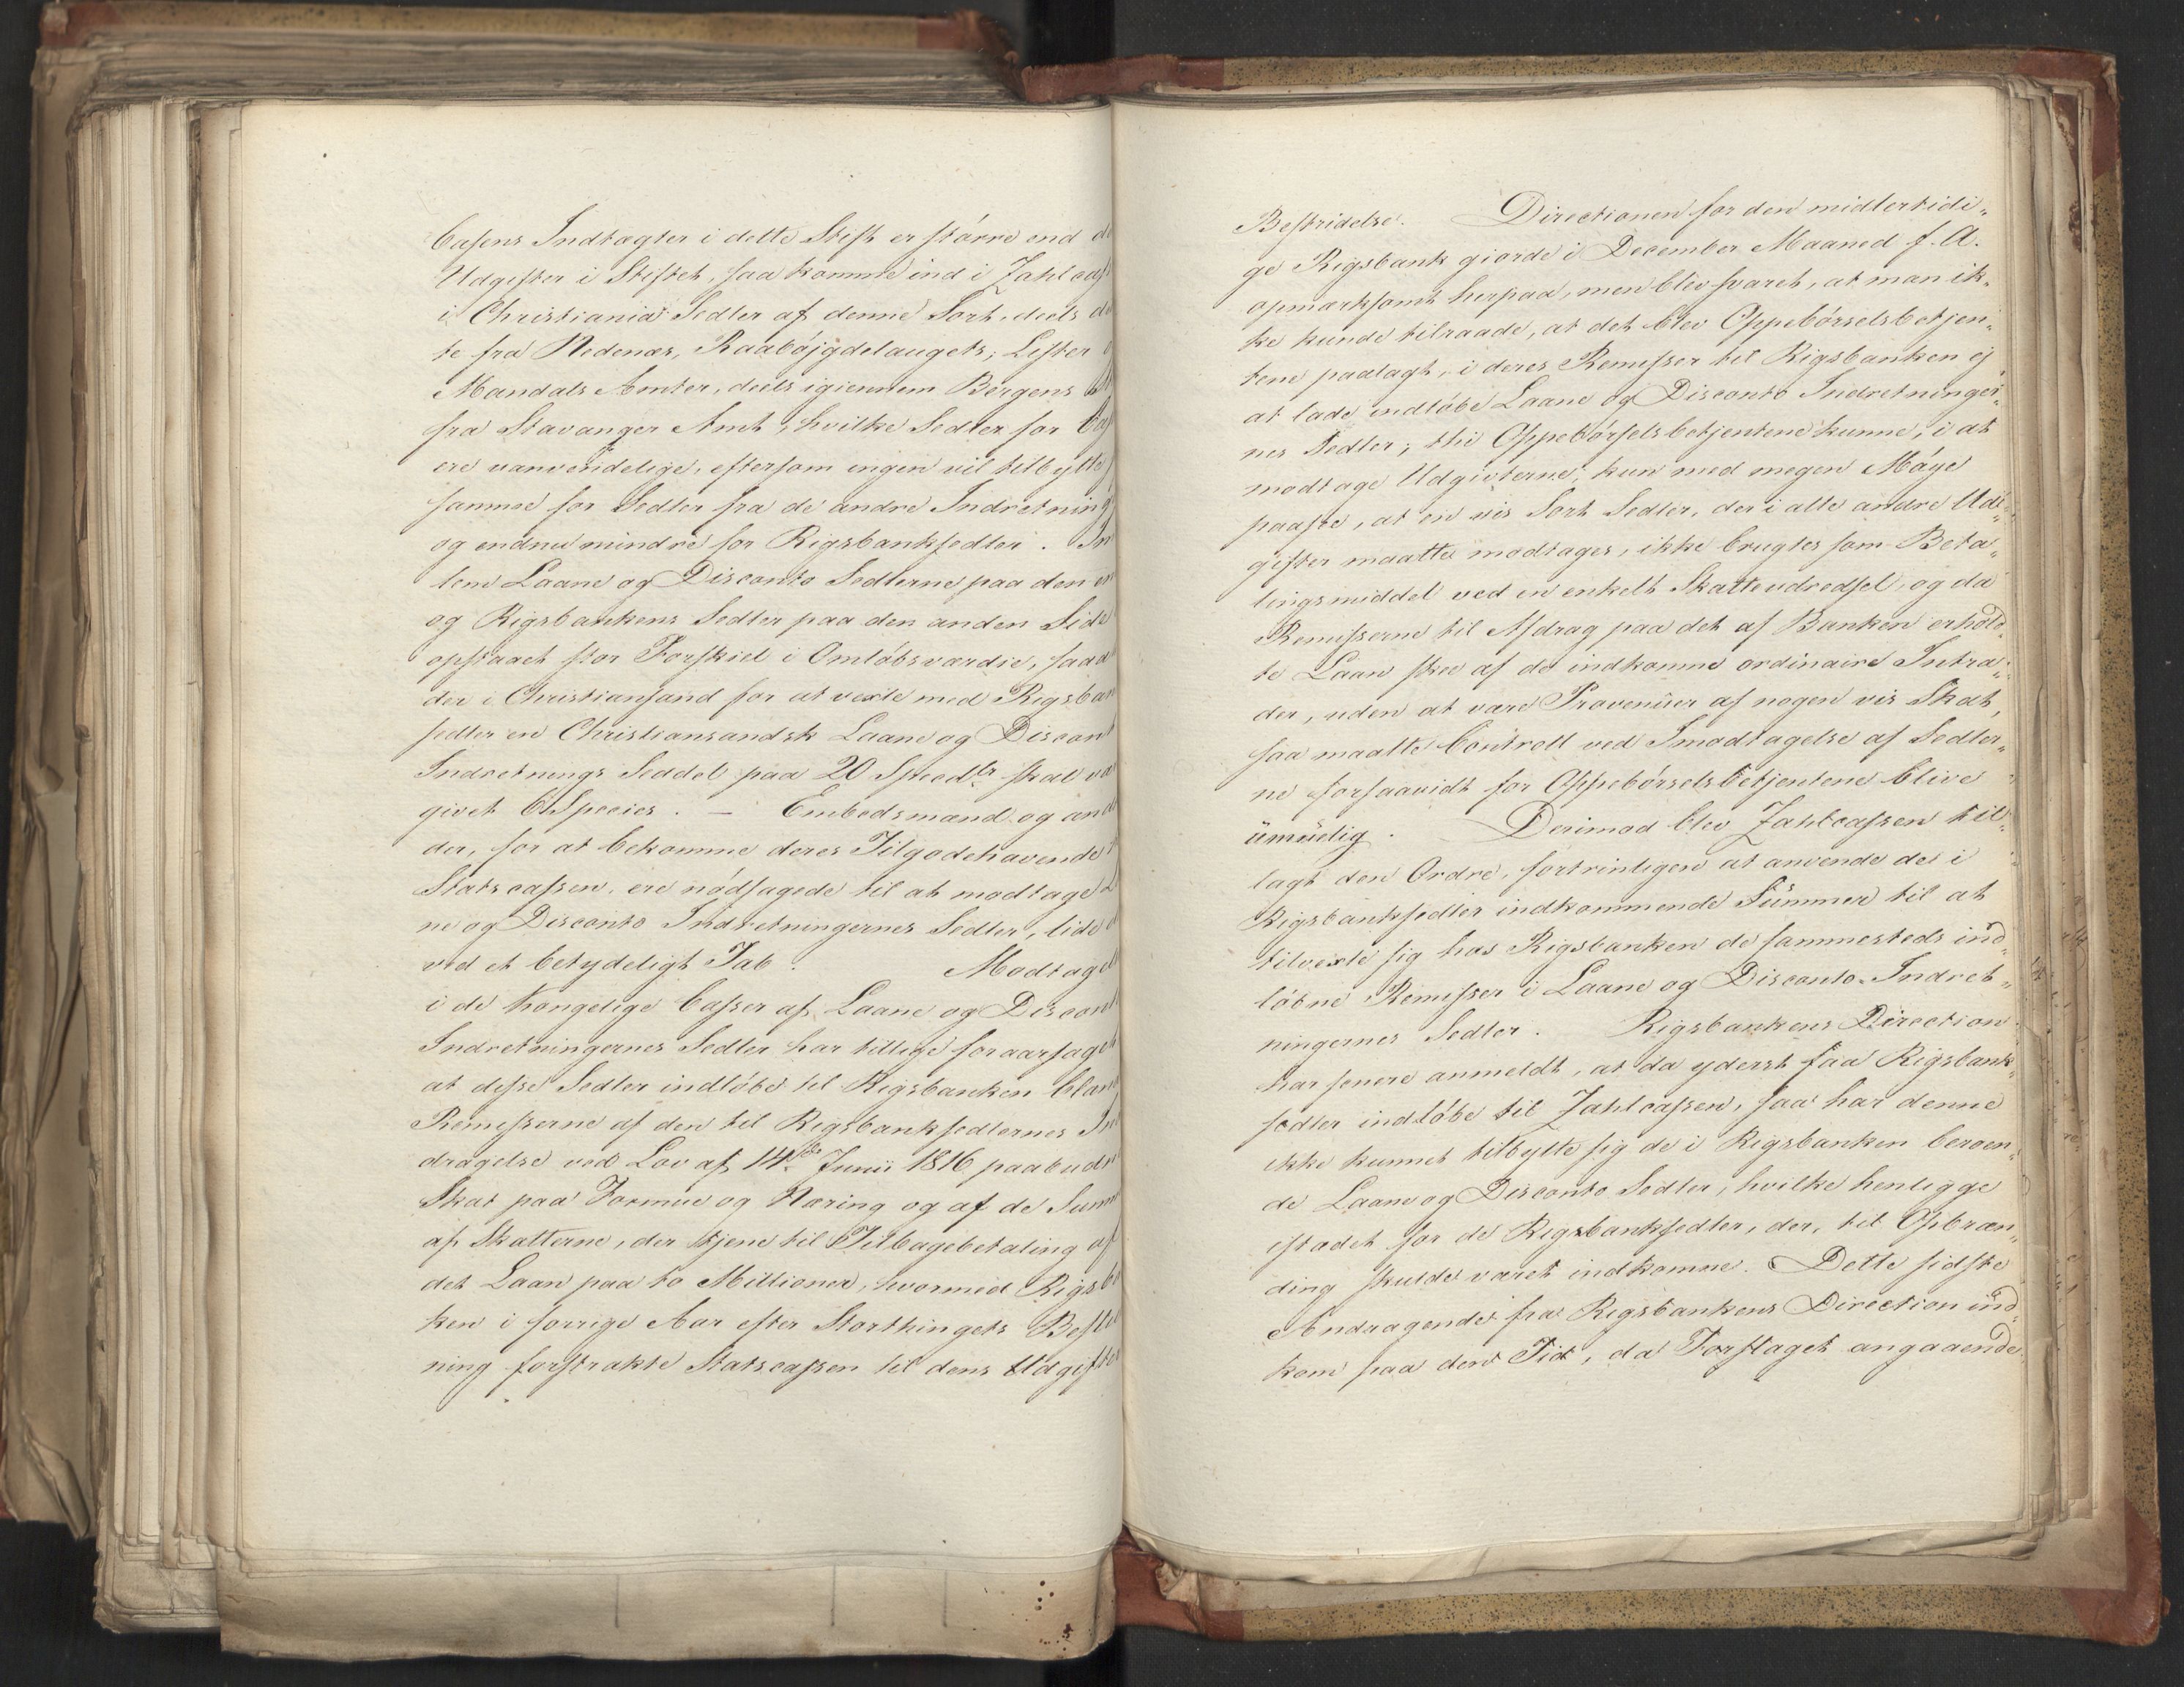 Casens Indtægter i dette Stift er större end de
Udgifter i Stiftet, saa komme ind i Zahlcass
i Christiania Sedler af denne Sort, deels di
te fra Nedenæs, Raabøjgdelaugets, Lister o
Mandals Amter, deels igiennem Bergens
fra Stavanger Amt, hvilke Sedler for Cass
ere uanvendelige, eftersom ingen vil tilbytte
samme for Sedler fra de andre Indretning
og endnu mindre for Rigsbanksedler. Im
lem Laane og Disconto Sedlerne paa den en
og Rigsbankens Sedler paa den anden Side
opstaaet stor Forskiel i Omløbsværdie, saa a
der i Christiansand for at vexle med Rigsban
sedler en Christiansandsk Laane og Discont
Indretnings Seddel paa 20 Speciedlr skal væ
givet 6 Species. — Embedsmænd og and
der, for at bekomme deres Tilgodehavende
Statscassen, ere nødsagede til at modtage L
ne og Disconto Indretningernes Sedler, lide d
ved et betydeligt Tab. Modtagel
i de kongelige Casser af Laane og Discont
Indretningernes Sedler har tillige foraarsaget
at disse Sedler indløbe til Rigsbanken bland
Remisserne af den til Rigsbanksedlernes In
dragelse ved Lov af 14de Junii 1816 paabudn
Skat paa Formue og Næring og af de Summ
af Skatterne, der tjene til Tilbagebetaling af
det Laan paa to Millioner, hvormed Rigsba
ken i forrige Aar efter Storthingets Beste
ning forstrakte Statscassen til dens Udgifter
Bestridelse. Directionen for den midlertidi„
ge Rigsbank giorde i December Maaned f. A.
opmærksomt herpaa, men blev svaret, at man ik„
ke kunde tilraade, at det blev Oppebørselsbetjen„
tene paalagt, i deres Remisser til Rigsbanken ej
at lade indløbe Laane og Disconto Indretninger„
nes Sedler; thi Oppebørselsbetjentene kunne, i at
modtage Udgivterne, kun med megen Møye
paasee, at en vis Sort Sedler, der i alle andre Ud„
gifter maatte modtages, ikke brugtes som Beta„
lingsmiddel ved en enkelt Skatteudredsel, og da
Remisserne til Afdrag paa det af Banken erhold„
te Laan skee af de indkomne ordinaire Intra„
der, uden at være Provenuer af nogen vis Skat,
saa maatte Controll ved Imodtagelse af Sedler„
ne forsaavidt for Oppebørselsbetjentene blive
umuelig. Derimod blev Zahlcassen til„
lagt den Ordre, fortrinligen at anvende de i
Rigsbanksedler indkommende Summer til at
tilvexle sig hos Rigsbanken de sammesteds ind„
løbne Remisser i Laane og Disconto-Indret„
ningernes Sedler. Rigsbankens Direction
har senere anmeldt, at da yderst faa Rigsbank„
sedler indløbe til Zahlcassen, saa har denne
ikke kunnet tilbytte sig de i Rigsbanken beroen„
de Laane og Disconto Sedler, hvilke henligge
istædet for de Rigsbanksedler, der, til Opbræn„
ding skulde været indkomne. Dette sidste
Andragende fra Rigsbankens Direction ind„
kom paa den Tid, da Forslaget angaaende